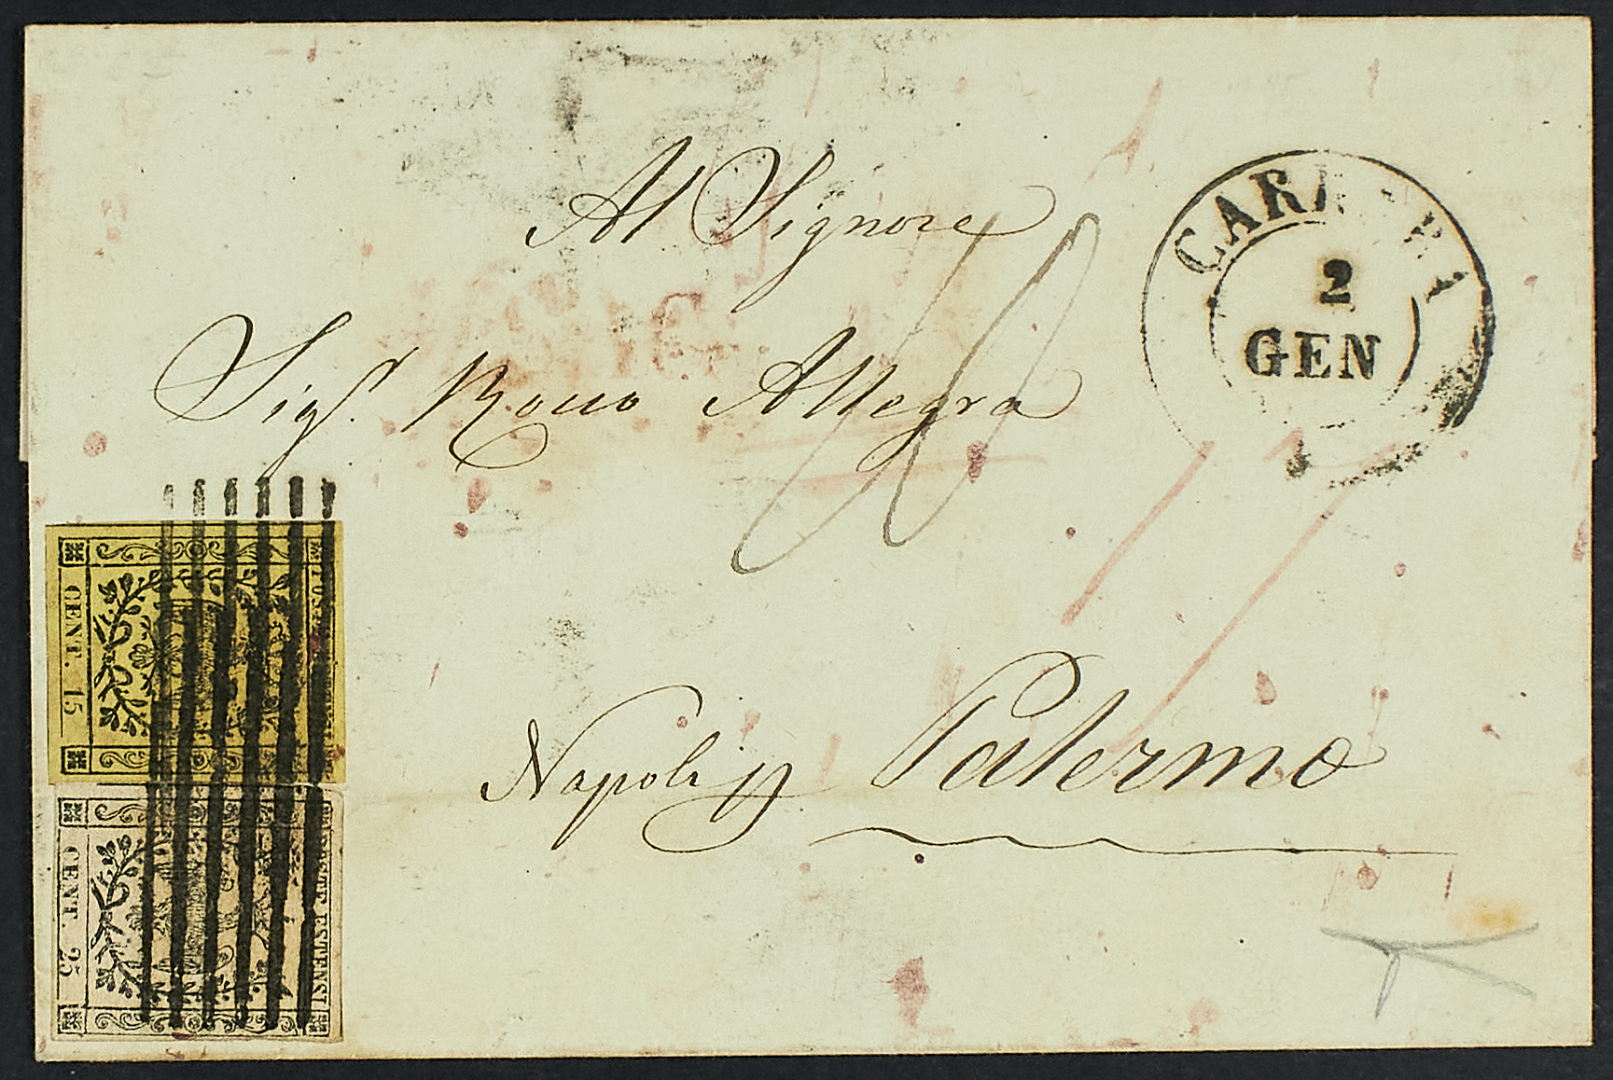 Al Signore
Sig.r Rocco Allegra
Napoli p Palermo
2
GEN
CENT. 15
CENT. 25
ESTENSI